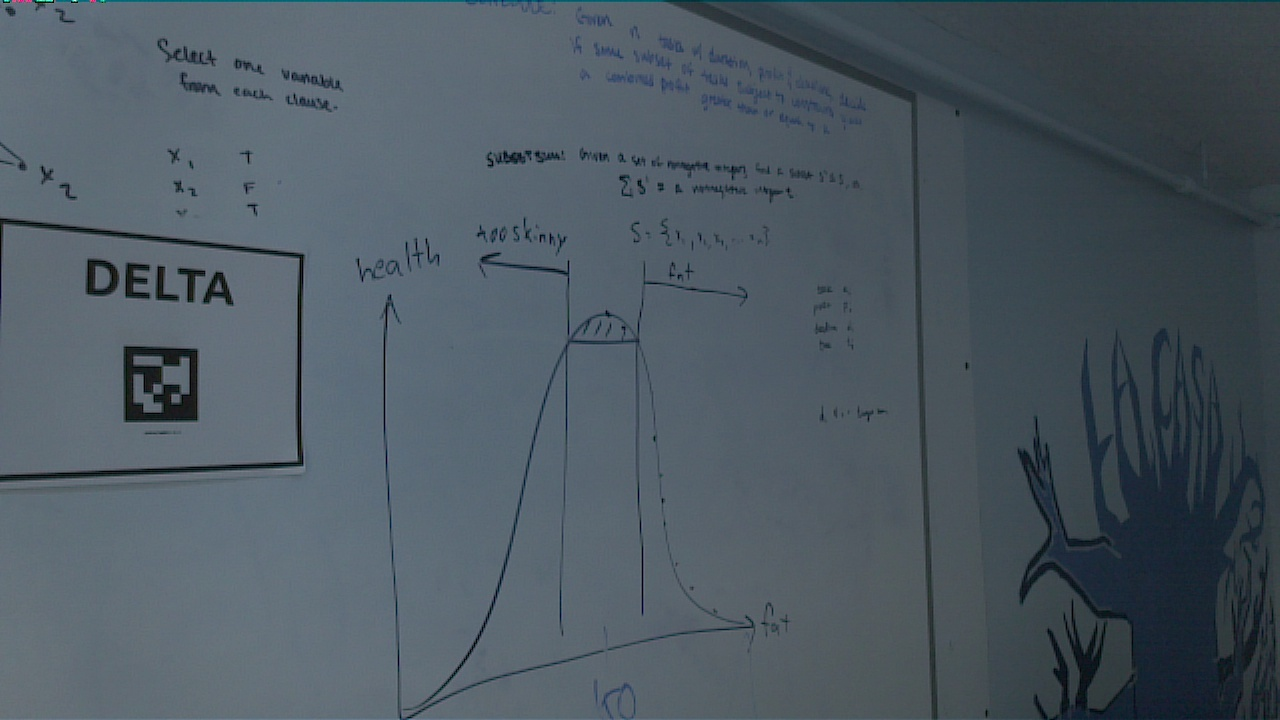 x2
Select one variable
from each clause.
x1 T
x2 F
T
x2
DELTA
SCHEDULE:
Given n tasks w/ duration, profit & deadline, decide
if some subset of tasks subject to constraints
a combined profit greater than or equal to
SUBSET SUM: Given a set of nonnegative integers, find a subset
∑ S' = a nonnegative integer
S = {x1, x2, x3, ... xn}
health
too skinny
fat
fat
150
LA CASA